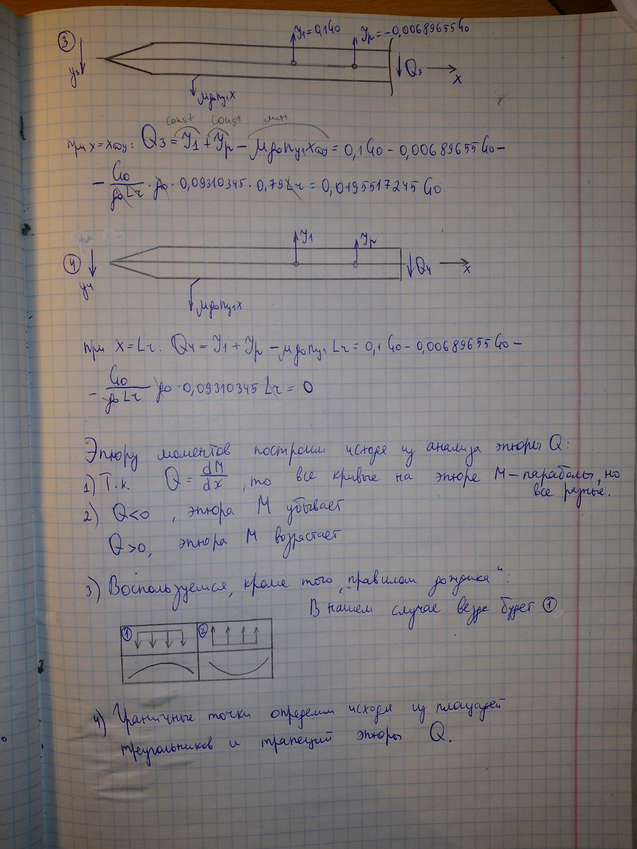 3 У1=0,1G0 Ур=-0,00689655G0
y3 Q3 x
μg0ny1x
const const min
при x=xоду: Q3=У1+Ур-μg0ny1xоду=0,1G0-0,00689655G0-
-G0/g0Lr·g0·0,09310345·0,79Lr=0,0195517245G0
4 У1 Ур
y4 Q4 x
μg0ny1x
при x=Lr: Q4=У1+Ур-μg0ny1Lr=0,1G0-0,00689655G0-
-G0/g0Lr g0·0,09310345Lr=0
Эпюру моментов построим исходя из анализа эпюры Q:
1) Т.к. Q=dM/dx, то все кривые на эпюре M-параболы, но
все разные.
2) Q<0, эпюра M убывает
Q>0, эпюра M возрастает
3) Воспользуемся, кроме того, „правилом дождика“:
В нашем случае везде будет 1
1 2
4) Граничные точки определим исходя из площадей
треугольников и трапеций эпюры Q.